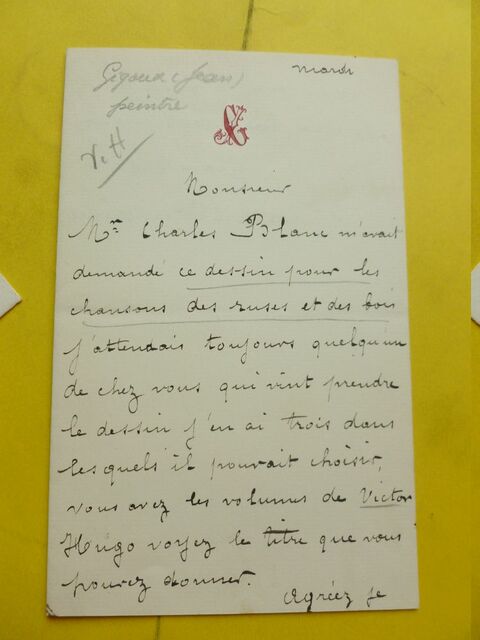 Gigoux (Jean)
peintre
V. H
mardi
Monsieur
Mr Charles Blanc m'avait
demandé ce dessin pour les
chansons des ruses et des bois
j'attendais toujours quelqu'un
de chez vous qui vint prendre
le dessin j'en ai trois dans
les quels il pouvait choisir,
vous avez les volumes de Victor
Hugo voyez le titre que vous
pouvez donner.
Agréez je